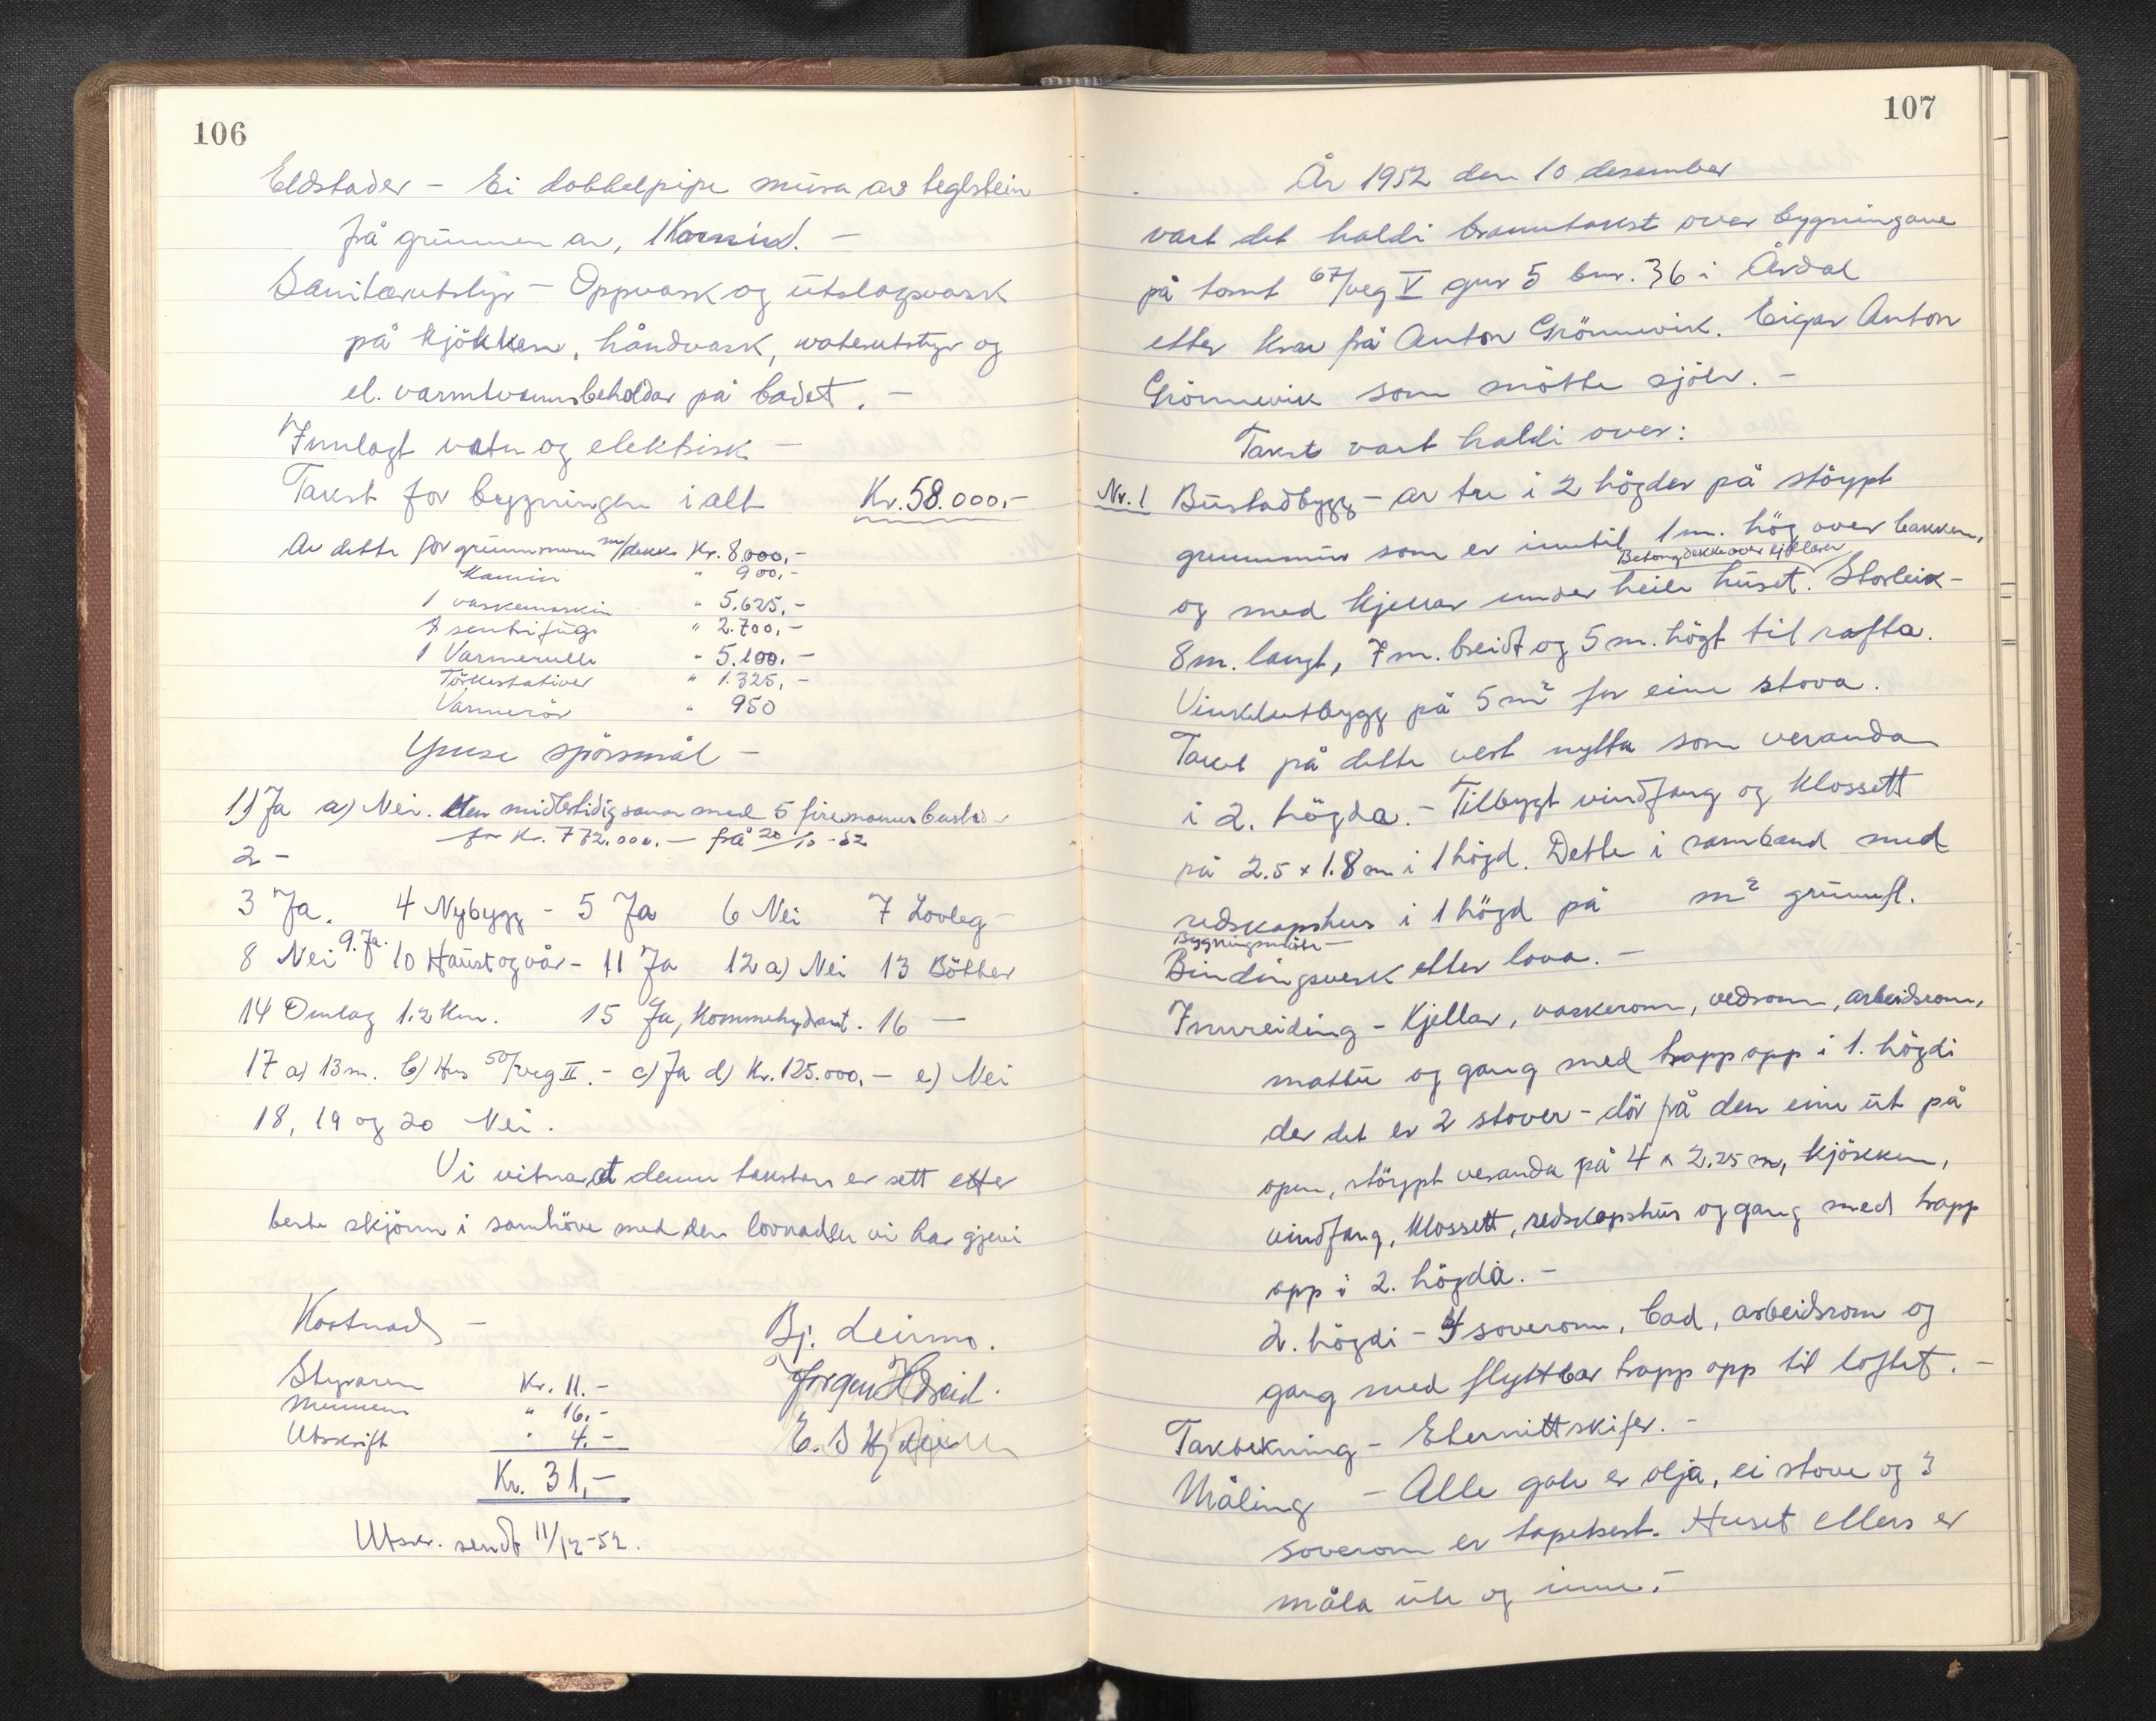 106
Eldstader – Ei dobbelpipe mura av teglstein
frå grunnen av, 1 Kamin. –
Sanitærutstyr – Oppvask og utslagsvask
på kjökken, håndvask, waterutstyr og
el. varmtvannsbeholdar på badet. –
Innlagt vatn og elektrisk –
Takst for bygningen i alt Kr. 58.000,-
Av dette for grunnmuren m/dekke Kr. 8.000,-
Kamin " 900,-
1 vaskemaskin " 5.625,-
1 sentrifuge " 2.700,-
1 Varmerulle " 5.100,-
Törkestativer " 1.325,-
Varmerör " 950
Ymse spörsmål –
1) Ja a) Nei. Men midlertidig saman med 5 firemannsbustader
for Kr. 772.000.- frå 20/10-52
2 –
3 Ja. 4 Nybygg – 5 Ja 6 Nei 7 Lovleg –
8 Nei 9. Ja. 10 Haust og vår – 11 Ja 12 a) Nei 13 Bötter
14 Omlag 1.2 Km. 15 Ja, Kommehydrant. 16 —
17 a) 13 m. b) Hus 50/veg II. – c) Ja d) Kr. 125.000,- e) Nei
18, 19 og 20 Nei.
Vi vitnar at denne taksten er sett etter
beste skjönn i samhöve med den lovnaden vi har gjevi
Kostnad – Bj. Leirmo.
Styraren Kr. 11.- Jörgen Hereid.
Mennene " 16,- E. S.
Utskrift " 4.-
Kr. 31,-
Utskr. sendt 11/12-52.
107
År 1952 den 10 desember
vart det haldi branntakst over bygningane
på tomt 67/veg V gnr 5 bnr. 36 i Årdal
etter krav frå Anton Grönnevik. Eigar Anton
Grönnevik som mötte sjölv. –
Takst vart haldi over:
Nr. 1 Bustadbygg – av tre i 2 högder på stöypt
grunnmur som er inntil 1 m. hög over bakken,
Betongdekke over kjellaren
og med kjellar under heile huset. Storleik –
8 m. langt, 7 m. breidt og 5 m. högt til rafta.
Vinkelutbygg på 5 m² for eine stova.
Taket på dette vert nytta som veranda
i 2. högda. – Tilbygt vindfang og klossett
på 2.5 x 1.8 m i 1 högd. Dette i samband med
redskapshus i 1 högd på m² grunnfl.
Bygningsmåte –
Bindingsverk etter lova. –
Innreiding – Kjellar, vaskerom, vedrom, arbeidsrom,
matbu og gang med trapp opp i 1. högdi
der det er 2 stover – dör frå den eine ut på
open, stöypt veranda på 4 x 2.25 m, kjökken,
vindfang, klossett, redskapshus og gang med trapp
opp i 2. högda. –
2. högdi – 4 soverom, bad, arbeidsrom og
gang med flyttbar trapp opp til loftet. –
Taktekning – Eternittskifer. –
Måling – Alle golv er olja, ei stove og 3
soverom er tapetsert. Huset ellers er
måla ute og inne. –